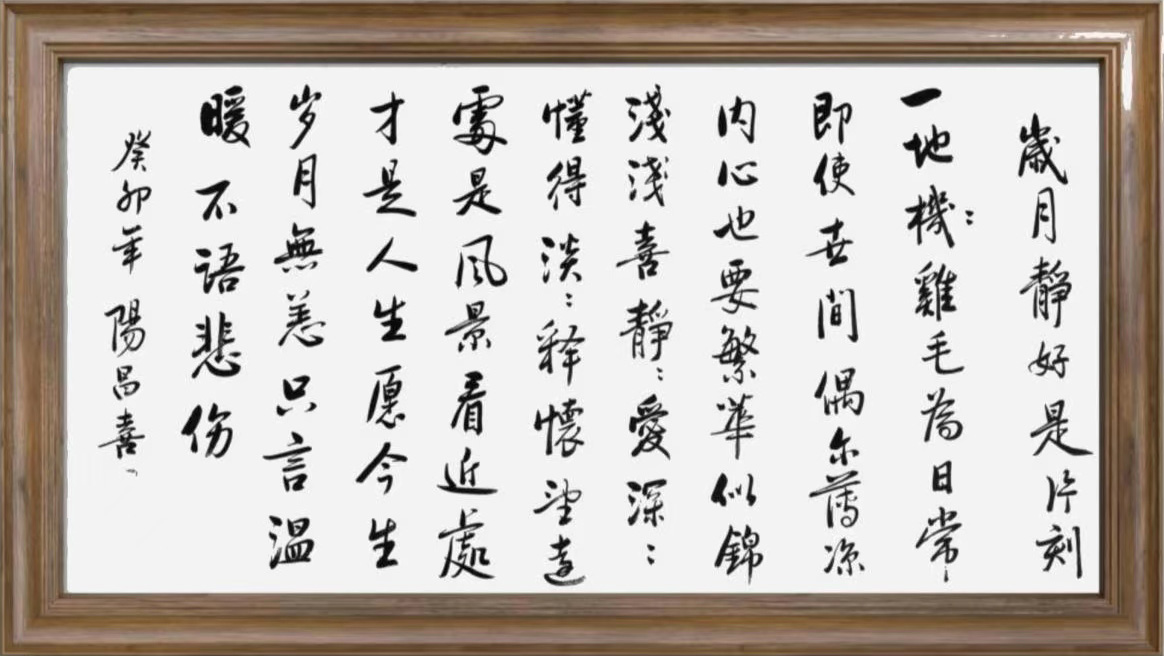 歲月靜好是片刻
一地機:雞毛為日常
即使世間偶尔薄凉
内心也要繁華似錦
淺淺喜靜:愛深::
懂得淡:释懷望遠
處是風景看近處
才是人生愿今生
岁月無恙只言温
暖不语悲伤
癸卯年陽昌喜